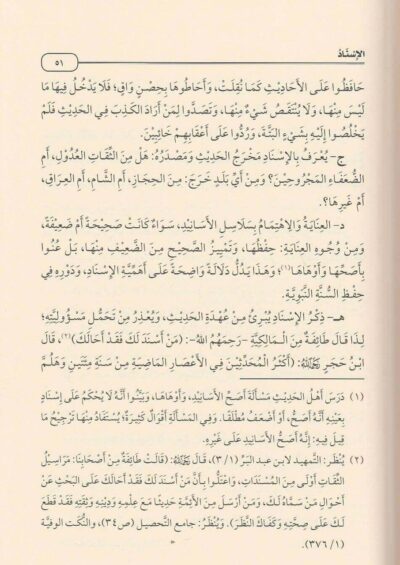 الإِسْنَادُ
٥١
حَافَظُوا عَلَى الأَحَادِيثِ كَمَا نُقِلَتْ، وَأَحَاطُوهَا بِحِصْنٍ وَاقٍ؛ فَلَا يَدْخُلُ فِيهَا مَا
لَيْسَ مِنْهَا، وَلَا يُنْتَقَصُ شَيْءٌ مِنْهَا، وَتَصَدَّوا لِمَنْ أَرَادَ الكَذِبَ فِي الحَدِيثِ فَلَمْ
يَخْلُصُوا إِلَيْهِ بِشَيْءٍ البَتَّةَ، وَرُدُّوا عَلَى أَعْقَابِهِمْ خَائِبِينَ.
ج- يُعْرَفُ بِالإِسْنَادِ مَخْرَجُ الحَدِيثِ وَمَصْدَرُهُ: هَلْ مِنَ الثِّقَاتِ العُدُولِ، أَمِ
الضُّعَفَاءِ المَجْرُوحِينَ؟ وَمِنْ أَيِّ بَلَدٍ خَرَجَ: مِنَ الحِجَازِ، أَمِ الشَّامِ، أَمِ العِرَاقِ،
أَمْ غَيْرِهَا؟.
د- العِنَايَةُ وَالِاهْتِمَامُ بِسَلَاسِلِ الأَسَانِيدِ، سَوَاءٌ كَانَتْ صَحِيحَةً أَمْ ضَعِيفَةً،
وَمِنْ وُجُوهِ العِنَايَةِ: حِفْظُهَا، وَتَمْيِيزُ الصَّحِيحِ مِنَ الضَّعِيفِ مِنْهَا، بَلْ عُنُوا
بِأَصَحِّهَا وَأَوْهَاهَا(١)؛ وَهَذَا يَدُلُّ دَلَالَةً وَاضِحَةً عَلَى أَهَمِّيَّةِ الإِسْنَادِ، وَدَوْرِهِ فِي
حِفْظِ السُّنَّةِ النَّبَوِيَّةِ.
هـ- ذِكْرُ الإِسْنَادِ يُبْرِئُ مِنْ عُهْدَةِ الحَدِيثِ، وَيُعْذِرُ مِنْ تَحَمُّلِ مَسْؤُولِيَّتِهِ؛
لِذَا قَالَ طَائِفَةٌ مِنَ المَالِكِيَّةِ -رَحِمَهُمُ اللهُ-: (مَنْ أَسْنَدَ لَكَ فَقَدْ أَحَالَكَ)(٢)، قَالَ
ابْنُ حَجَرٍ رَحِمَهُ اللهُ: (أَكْثَرُ المُحَدِّثِينَ فِي الأَعْصَارِ المَاضِيَةِ مِنْ سَنَةِ مِئَتَيْنِ وَهَلُمَّ
(١) دَرَسَ أَهْلُ الحَدِيثِ مَسْأَلَةَ أَصَحِّ الأَسَانِيدِ، وَأَوْهَاهَا، وَبَيَّنُوا أَنَّهُ لَا يُحْكَمُ عَلَى إِسْنَادٍ
بِعَيْنِهِ أَنَّهُ أَصَحُّ، أَوْ أَضْعَفُ مُطْلَقًا. وَفِي المَسْأَلَةِ أَقْوَالٌ كَثِيرَةٌ؛ يُسْتَفَادُ مِنْهَا تَرْجِيحُ مَا
قِيلَ فِيهِ: إِنَّهُ أَصَحُّ الأَسَانِيدِ عَلَى غَيْرِهِ.
(٢) يُنْظَر: التمهيد لابن عبد البرّ (١/ ٣)، قَالَ رَحِمَهُ اللهُ: (قَالَتْ طَائِفَةٌ مِنْ أَصْحَابِنَا: مَرَاسِيلُ
الثِّقَاتِ أَوْلَى مِنَ المُسْنَدَاتِ، وَاعْتَلُّوا بِأَنَّ مَنْ أَسْنَدَ لَكَ فَقَدْ أَحَالَكَ عَلَى البَحْثِ عَنْ
أَحْوَالِ مَنْ سَمَّاهُ لَكَ، وَمَنْ أَرْسَلَ مِنَ الأَئِمَّةِ حَدِيثًا مَعَ عِلْمِهِ وَدِينِهِ وَثِقَتِهِ فَقَدْ قَطَعَ
لَكَ عَلَى صِحَّتِهِ وَكَفَاكَ النَّظَرَ). وَيُنْظَرُ: جامع التحصيل (ص٣٤)، والنُّكت الوفية
(١/ ٣٧٦).